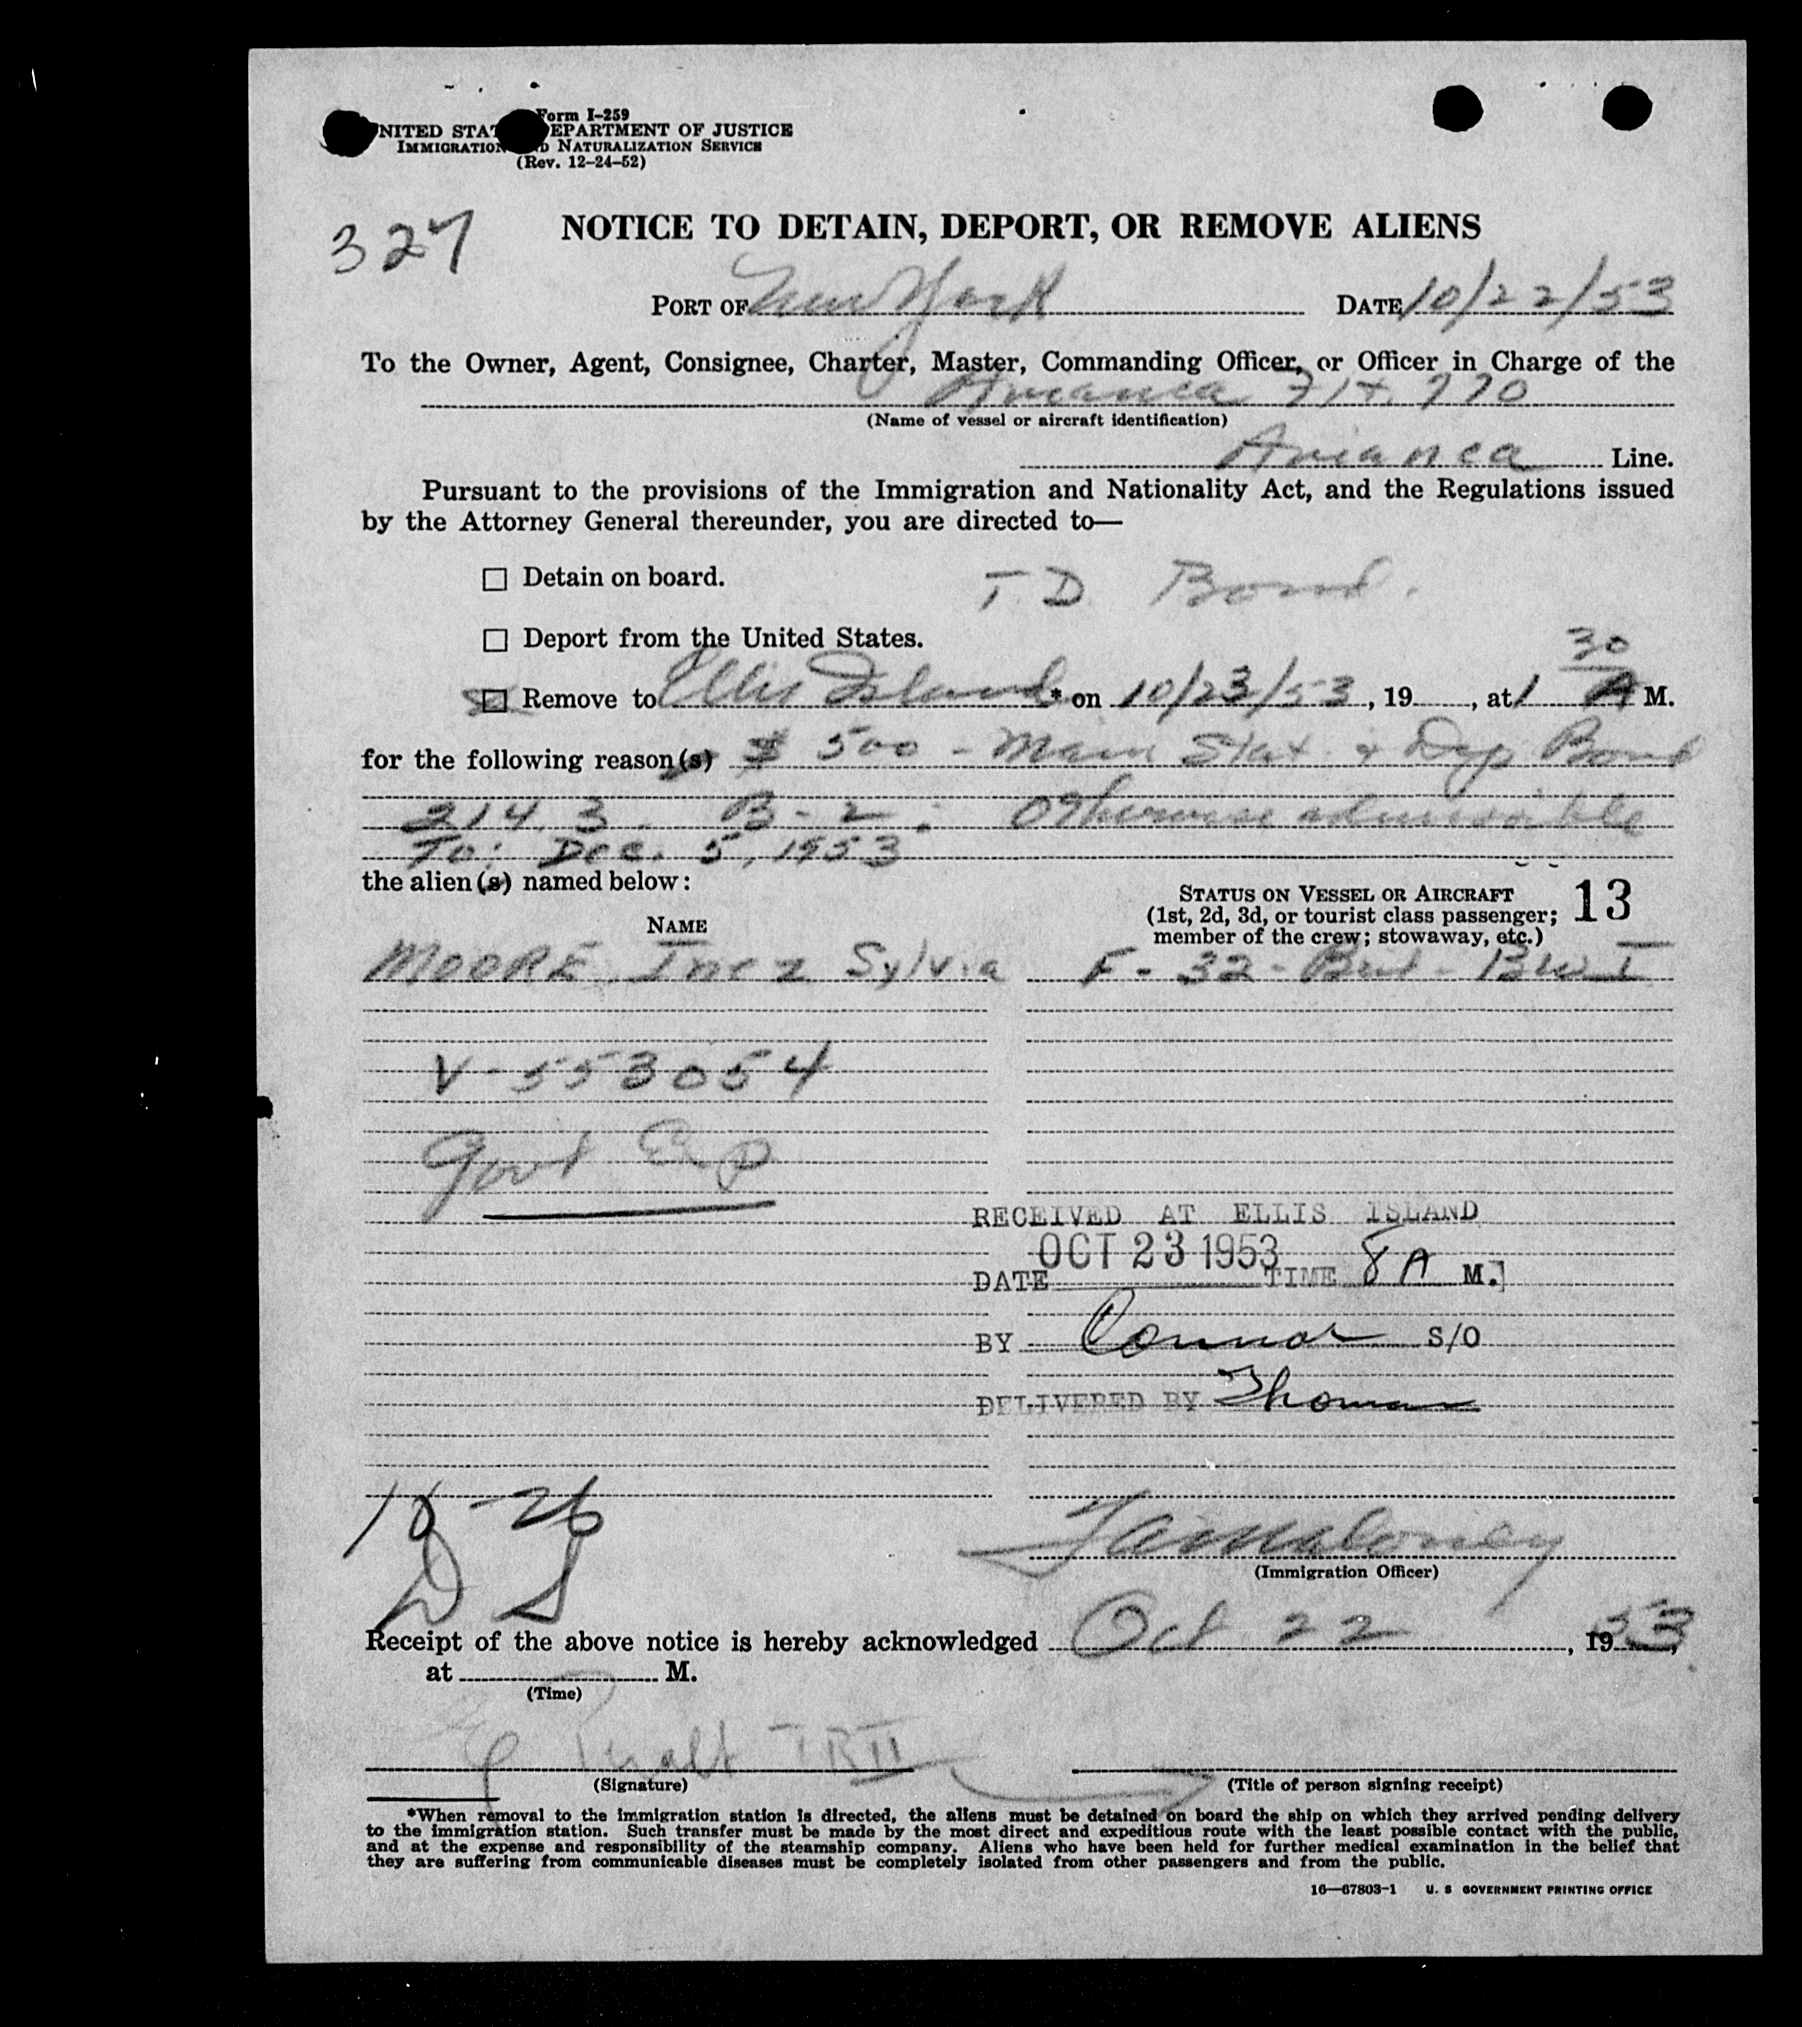 Form I-259
UNITED STATES DEPARTMENT OF JUSTICE
IMMIGRATION AND NATURALIZATION SERVICE
(Rev. 12-24-52)
327
NOTICE TO DETAIN, DEPORT, OR REMOVE ALIENS
PORT OF New York DATE 10/22/53
To the Owner, Agent, Consignee, Charter, Master, Commanding Officer, or Officer in Charge of the
Avianca Flt. 770
(Name of vessel or aircraft identification)
Avianca Line.
Pursuant to the provisions of the Immigration and Nationality Act, and the Regulations issued
by the Attorney General thereunder, you are directed to—
☐ Detain on board. T. D. Bond.
☐ Deport from the United States.
☒ Remove to Ellis Island * on 10/23/53, 19, at 1 30 A M.
for the following reason(s) $ 500 - Main Stat. & Dep Bond
214.3. B-2; Otherwise admissible
To: Dec. 5, 1953
the alien(s) named below:
STATUS ON VESSEL OR AIRCRAFT 13
(1st, 2d, 3d, or tourist class passenger;
member of the crew; stowaway, etc.)
NAME
MOORE, Inez Sylvia F - 32 - Brit - BWI
V-553054
Govt Exp
RECEIVED AT ELLIS ISLAND
DATE OCT 23 1953 TIME 8 A M.
BY Connor S/O
DELIVERED BY Thomas
10-26
DS
Maloney
(Immigration Officer)
Receipt of the above notice is hereby acknowledged Oct 22, 1953,
at M.
(Time)
TR II
(Signature) (Title of person signing receipt)
*When removal to the immigration station is directed, the aliens must be detained on board the ship on which they arrived pending delivery
to the immigration station. Such transfer must be made by the most direct and expeditious route with the least possible contact with the public,
and at the expense and responsibility of the steamship company. Aliens who have been held for further medical examination in the belief that
they are suffering from communicable diseases must be completely isolated from other passengers and from the public.
16—67803-1 U. S GOVERNMENT PRINTING OFFICE